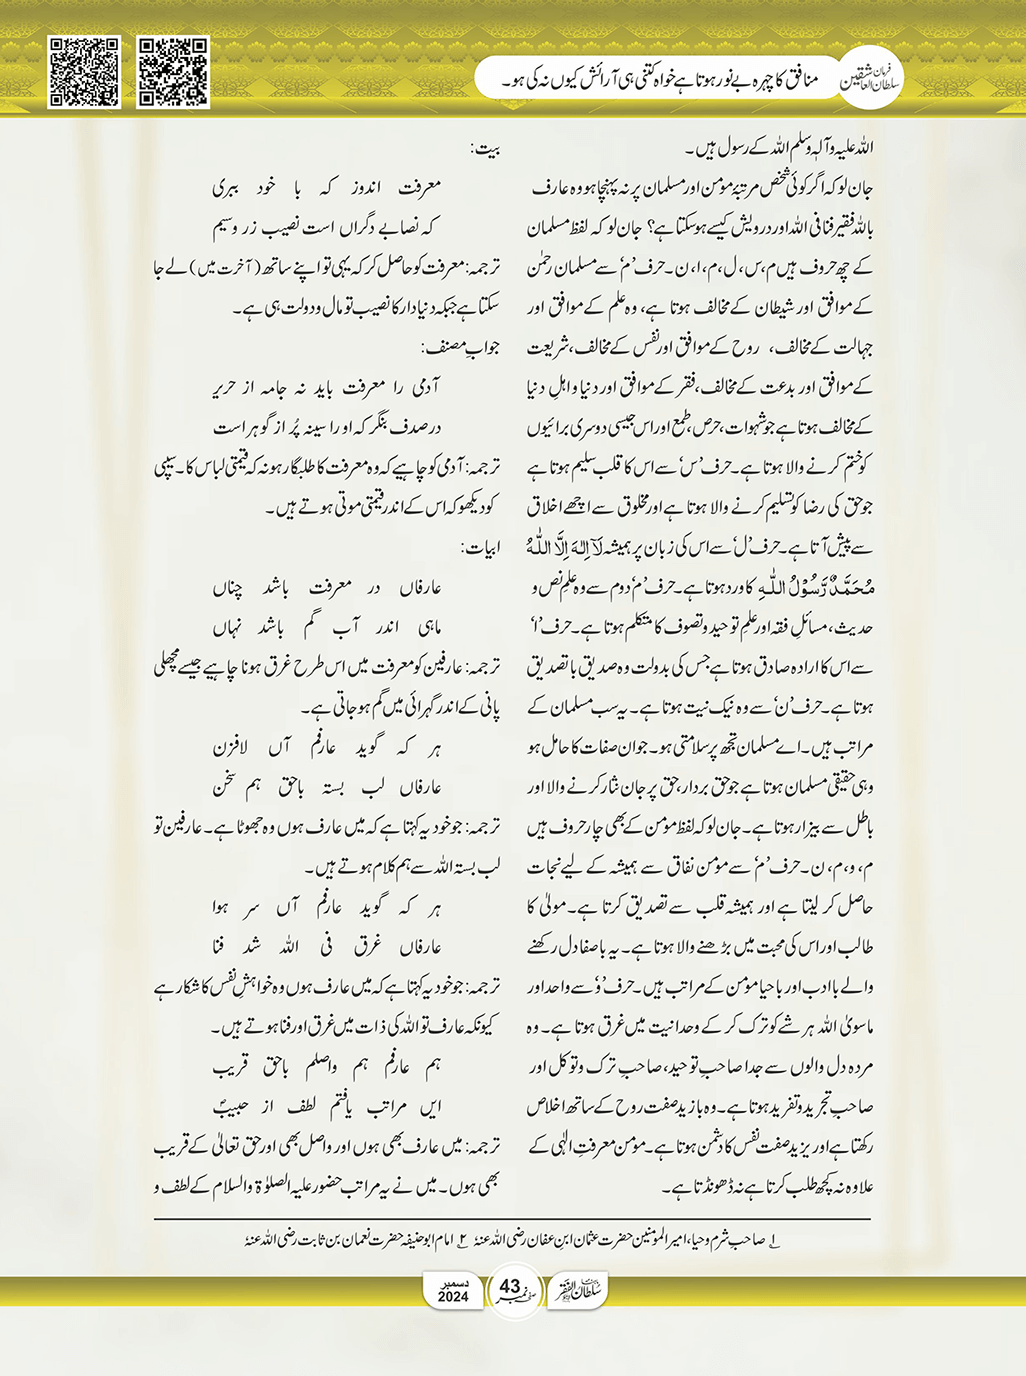 فرمان سلطان العاشقین
منافق کا چہرہ بے نور ہوتا ہے خواہ کتنی ہی آرائش کیوں نہ کی ہو۔
اللہ علیہ وآلہٖ وسلم اللہ کے رسول ہیں۔
جان لو کہ اگر کوئی شخص مرتبۂ مومن اور مسلمان پر نہ پہنچا ہو وہ عارف
باللہ فقیر فنا فی اللہ اور درویش کیسے ہو سکتا ہے؟ جان لو کہ لفظ مسلمان
کے چھ حروف ہیں م، س، ل، م، ا، ن۔ حرف ’م‘ سے مسلمان رحمٰن
کے موافق اور شیطان کے مخالف ہوتا ہے، وہ علم کے موافق اور
جہالت کے مخالف، روح کے موافق اور نفس کے مخالف، شریعت
کے موافق اور بدعت کے مخالف، فقر کے موافق اور دنیا و اہلِ دنیا
کے مخالف ہوتا ہے جو شہوات، حرص، طمع اور اس جیسی دوسری برائیوں
کو ختم کرنے والا ہوتا ہے۔ حرف ’س‘ سے اس کا قلب سلیم ہوتا ہے
جو حق کی رضا کو تسلیم کرنے والا ہوتا ہے اور مخلوق سے اچھے اخلاق
سے پیش آتا ہے۔ حرف ’ل‘ سے اس کی زبان پر ہمیشہ لَآ اِلٰہَ اِلَّا اللّٰہُ
مُحَمَّدٌ رَّسُوْلُ اللّٰہِ کا ورد ہوتا ہے۔ حرف ’م‘ دوم سے وہ علمِ نص و
حدیث، مسائلِ فقہ اور علمِ توحید و تصوف کا متکلم ہوتا ہے۔ حرف ’ا‘
سے اس کا ارادہ صادق ہوتا ہے جس کی بدولت وہ صدیق با تصدیق
ہوتا ہے۔ حرف ’ن‘ سے وہ نیک نیت ہوتا ہے۔ یہ سب مسلمان کے
مراتب ہیں۔ اے مسلمان تجھ پر سلامتی ہو۔ جو ان صفات کا حامل ہو
وہی حقیقی مسلمان ہوتا ہے جو حق بردار، حق پر جان نثار کرنے والا اور
باطل سے بیزار ہوتا ہے۔ جان لو کہ لفظ مومن کے بھی چار حروف ہیں
م، و، م، ن۔ حرف ’م‘ سے مومن نفاق سے ہمیشہ کے لیے نجات
حاصل کر لیتا ہے اور ہمیشہ قلب سے تصدیق کرتا ہے۔ مولیٰ کا
طالب اور اس کی محبت میں بڑھنے والا ہوتا ہے۔ یہ باصفا دل رکھنے
والے باادب اور باحیا مومن کے مراتب ہیں۔ حرف ’و‘ سے واحد اور
ماسویٰ اللہ ہر شے کو ترک کر کے وحدانیت میں غرق ہوتا ہے۔ وہ
مردہ دل والوں سے جدا صاحبِ توحید، صاحبِ ترک و توکل اور
صاحبِ تجرید و تفرید ہوتا ہے۔ وہ بایزید صفت روح کے ساتھ اخلاص
رکھتا ہے اور یزید صفت نفس کا دشمن ہوتا ہے۔ مومن معرفتِ الٰہی کے
علاوہ نہ کچھ طلب کرتا ہے نہ ڈھونڈتا ہے۔
بیت:
معرفت اندوز کہ با خود ببری
کہ نصابے دگراں است نصیب زر و سیم
ترجمہ: معرفت کو حاصل کر کہ یہی تو اپنے ساتھ (آخرت میں) لے جا
سکتا ہے جبکہ دنیادار کا نصیب تو مال و دولت ہی ہے۔
جوابِ مصنف:
آدمی را معرفت باید نہ جامہ از حریر
در صدف بنگر کہ او را سینہ پُر از گوہر است
ترجمہ: آدمی کو چاہیے کہ وہ معرفت کا طلبگار ہو نہ کہ قیمتی لباس کا۔ سیپی
کو دیکھو کہ اس کے اندر قیمتی موتی ہوتے ہیں۔
ابیات:
عارفاں در معرفت باشد چناں
ماہی اندر آب گم باشد نہاں
ترجمہ: عارفین کو معرفت میں اس طرح غرق ہونا چاہیے جیسے مچھلی
پانی کے اندر گہرائی میں گم ہو جاتی ہے۔
ہر کہ گوید عارفم آں لافزن
عارفاں لب بستہ باحق ہم سخن
ترجمہ: جو خود یہ کہتا ہے کہ میں عارف ہوں وہ جھوٹا ہے۔ عارفین تو
لب بستہ اللہ سے ہم کلام ہوتے ہیں۔
ہر کہ گوید عارفم آں سر ہوا
عارفاں غرق فی اللہ شد فنا
ترجمہ: جو خود یہ کہتا ہے کہ میں عارف ہوں وہ خواہشِ نفس کا شکار ہے
کیونکہ عارف تو اللہ کی ذات میں غرق اور فنا ہوتے ہیں۔
ہم عارفم ہم واصلم باحق قریب
ایں مراتب یافتم لطف از حبیبؐ
ترجمہ: میں عارف بھی ہوں اور واصل بھی اور حق تعالیٰ کے قریب
بھی ہوں۔ میں نے یہ مراتب حضور علیہ الصلوٰۃ والسلام کے لطف و
۱؎ صاحبِ شرم و حیا، امیر المومنین حضرت عثمان ابنِ عفان رضی اللہ عنہٗ ۲؎ امام ابو حنیفہ حضرت نعمان بن ثابت رضی اللہ عنہٗ
سلطان الفقر
صفحہ نمبر 43
دسمبر 2024